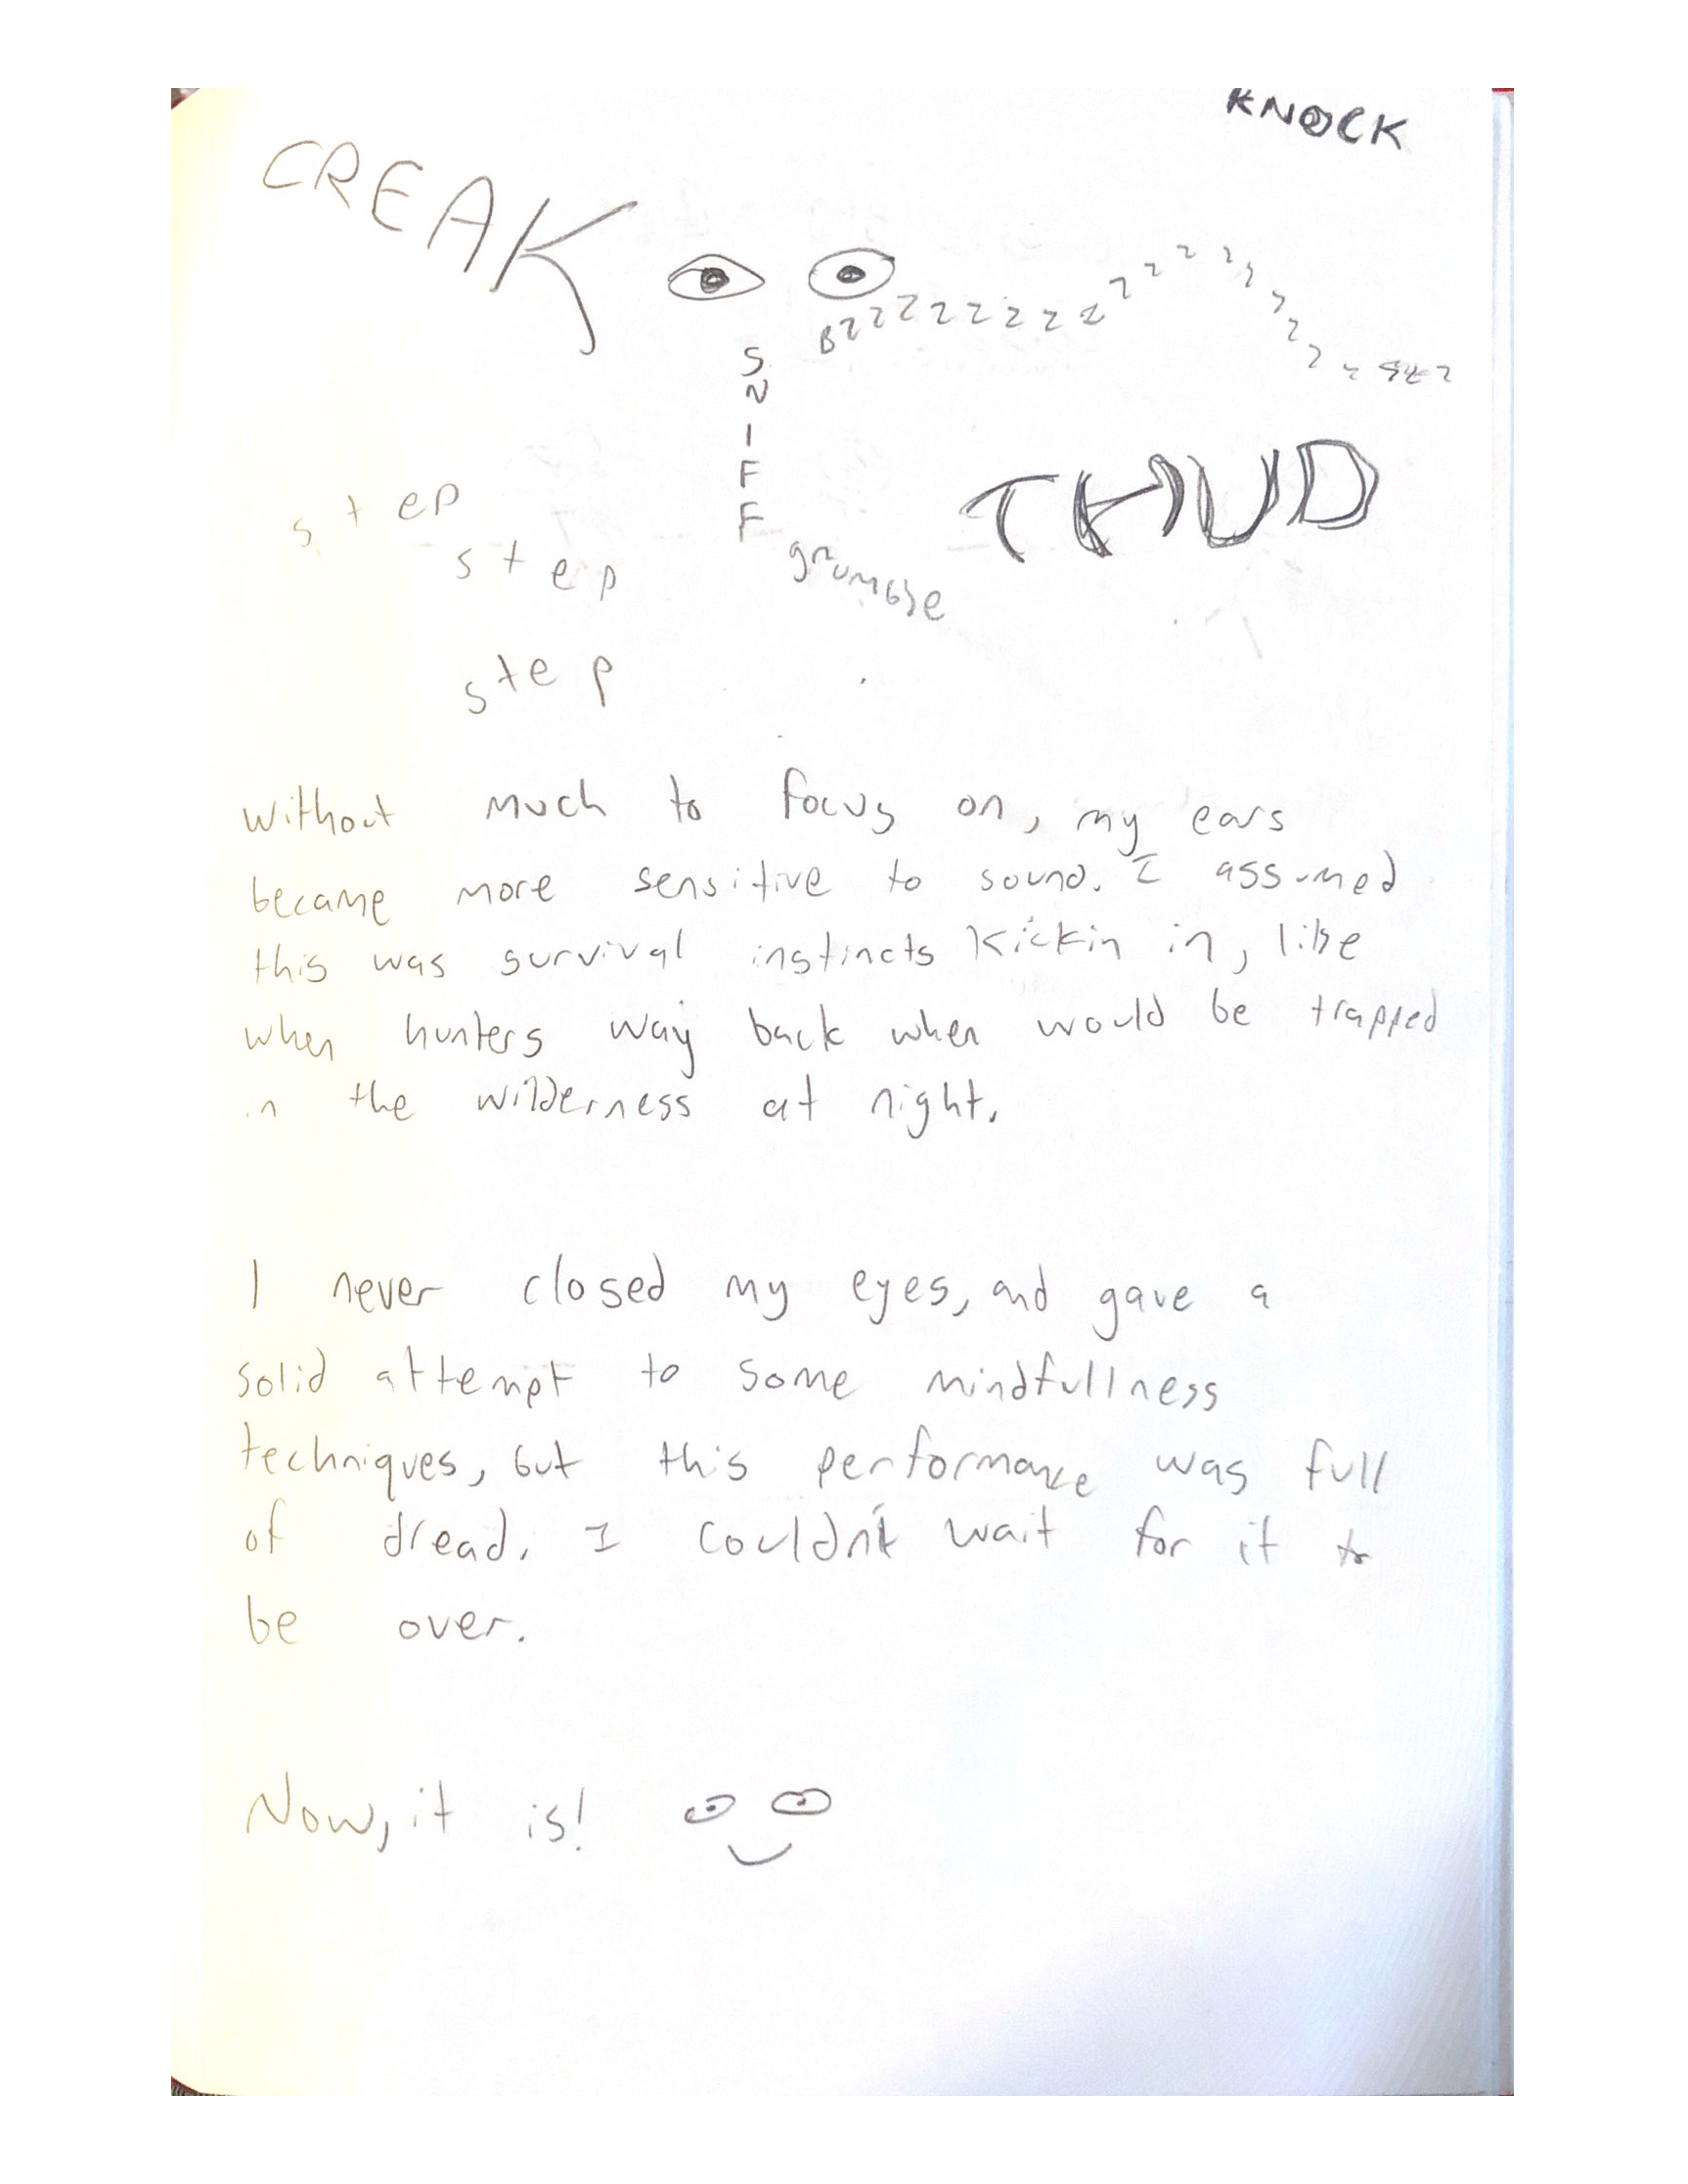 KNOCK
CREAK
BZZZZZZZZZZZZZZZZZZZZZZ
SNIFF
THUD
step
step
grumble
step
without much to focus on, my ears
became more sensitive to sound. I assumed
this was survival instincts kickin in, like
when hunters way back when would be trapped
in the wilderness at night.
I never closed my eyes, and gave a
solid attempt to some mindfullness
techniques, but this performance was full
of dread. I couldn't wait for it to
be over.
Now, it is!